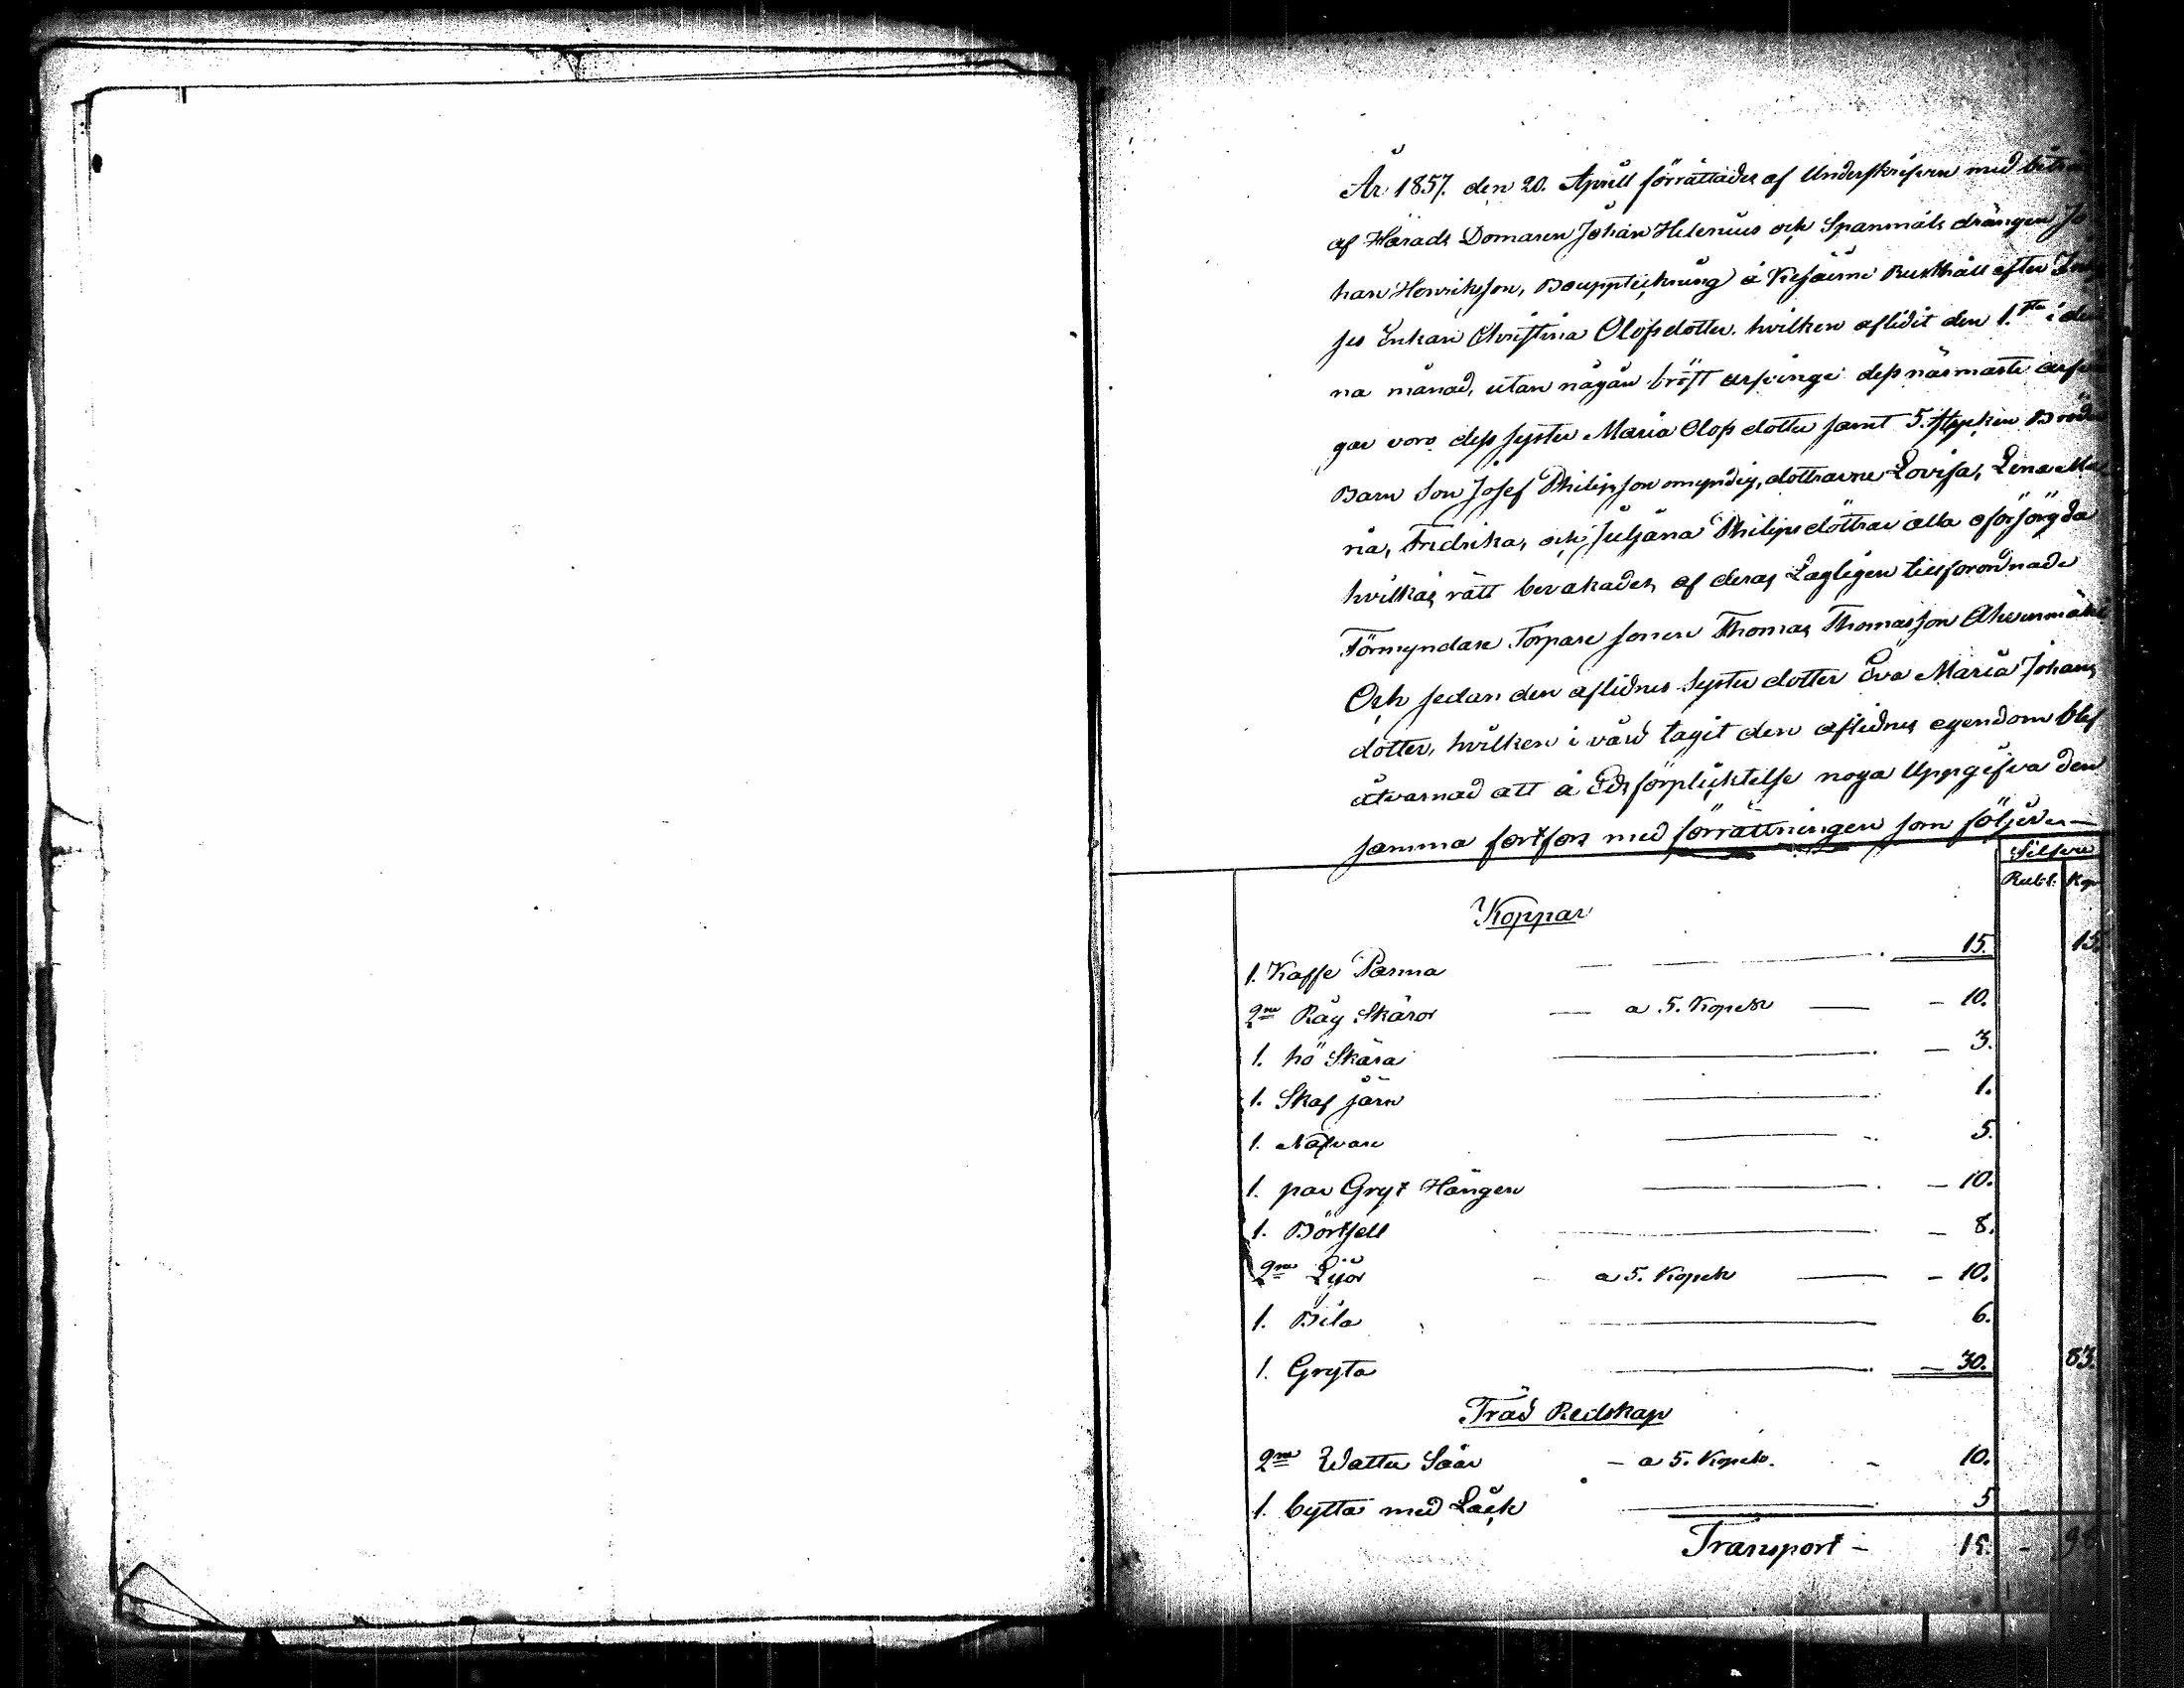 År 1857. den 20. Aprill förrättades af Underskrifven med biträ
af Härads Domaren Johan Helenius och Spanmåls drängen Jo
han Henriksson, Bouppteckning å Rusthåll efter
ses Enkan Christina Olofsdotter. hvilken aflidit den 1.sta i den
na månad, utan någån bröst arfvinge dess närmaste arfvin
gar voro dess syster Maria Olofs dotter samt 5. stycken Broders
Barn Son Josef Philipsson omyndig, döttrarne Lovisa, Lena Ma
ria, Fredrika, och Juljana Philips döttrar alla oförsörgda
hvilkas rätt bevakades af deras Lagligen tillforordnade
Förmyndare Torpare sonen Thomas Thomasson
Och sedan den aflidnes Syster dotter Eva Maria Johans
dotter, hvilken i vård tagit den aflidnes egendom blef
åtvarnad att å Eds förplicktelse noga Uppgifva den
samma fortfors med förrättningen som följer
Silfver
Rubl. Kop
Koppar
1. Kaffe Panna — — . 15. 15.
2ne Råg Skäror — a 5. Kopek — – 10.
1. hö Skära — . – 3.
1. Skaf järn — . 1.
1. Nafvare — 5.
1. par Gryt Hängen — . – 10.
1. Börtsell — – 8.
2ne Lijor a 5. Kopek — – 10.
1. Bila — 6.
1. Gryta — . – 30. 83.
Träd Redskap
2ne Watten Såar – a 5. Kopek. – 10.
1. bytta med Låck — 5
Transport – 15. – 98